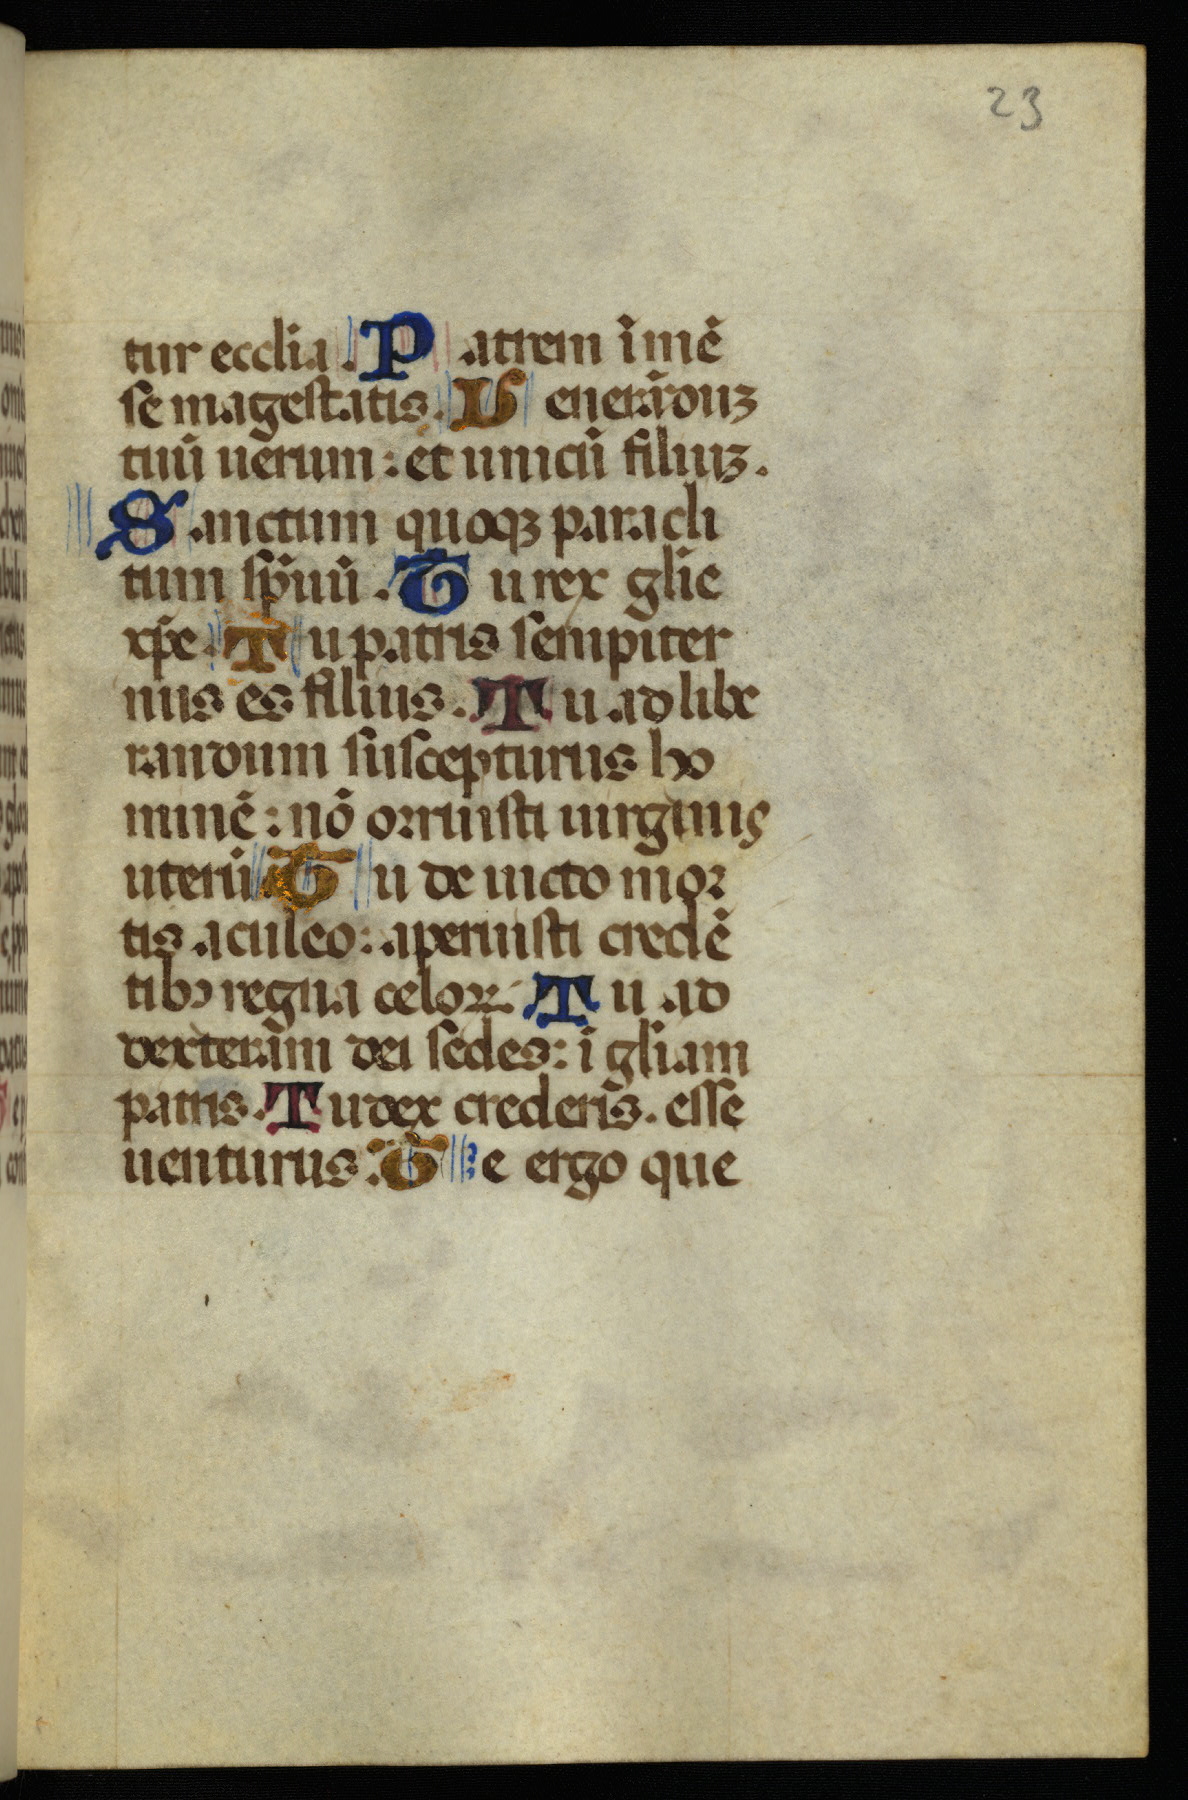 23
tur ecclīa. Patrem īmē
se magestatis. Venerāduȝ
tuū uerum: et unicū filiuȝ.
Sanctum quoqȝ paracli
tum sp̄m̄. Tu rex glīe
xp̄e. Tu patris sempiter
nus es filius. Tu ad libe
randum suscepturus ho
minē: nō orruisti uirginis
uterū. Tu deuicto mor
tis aculeo: aperuisti credē
tibꝰ regna celoꝝ. Tu ad
dexterām dei sedes: ī glīam
patris. Iudex crederis. esse
uenturus. Te ergo que